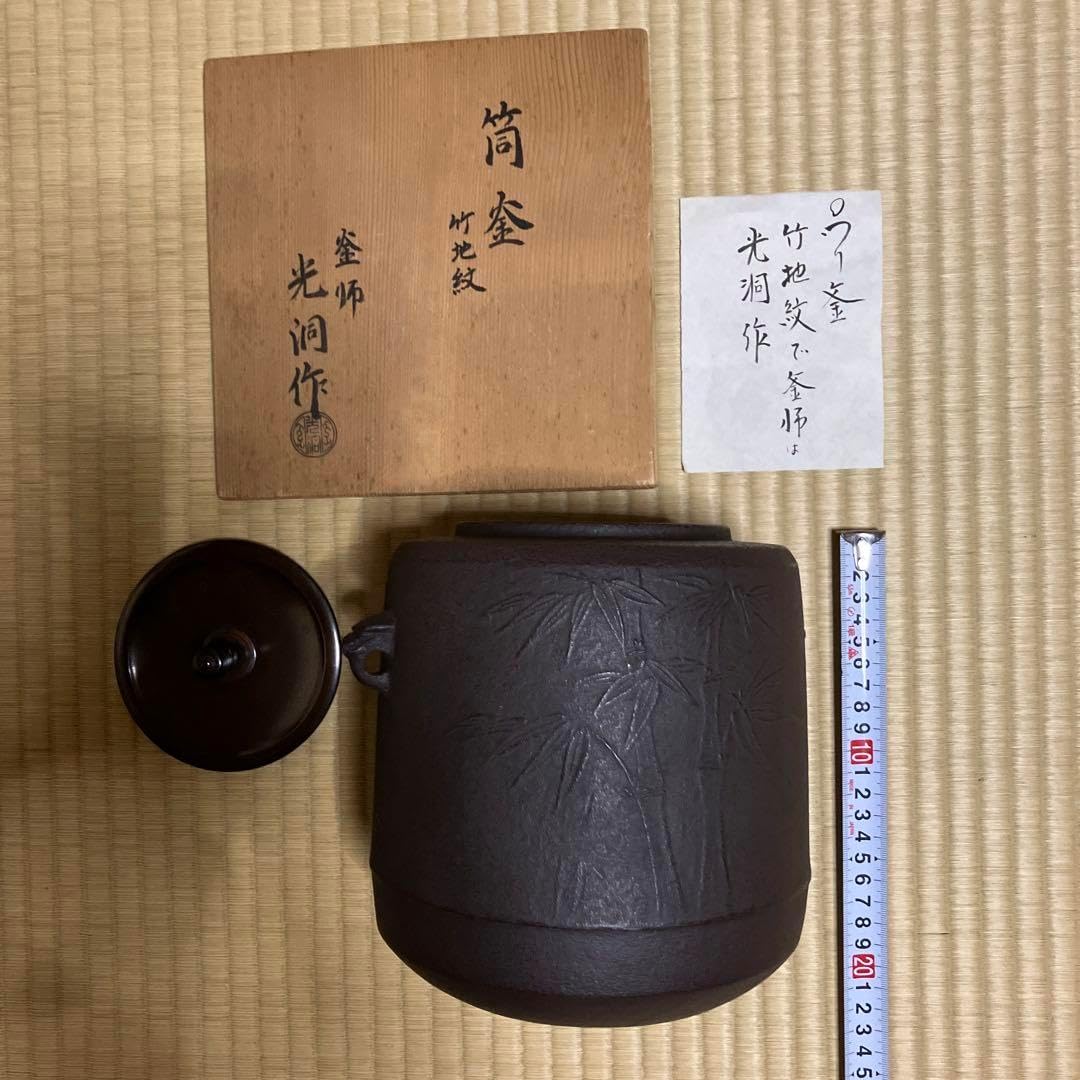 筒釜
竹地紋
釜師
光洞作
つり釜
竹地紋で釜師は
光洞作
2 3 4 5 6 7 8 9 10 1 2 3 4 5 6 7 8 9 20 1 2 3 4 5